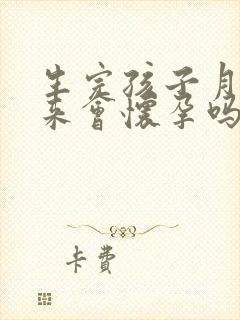 生完孩子月
来会怀孕吗
卡费